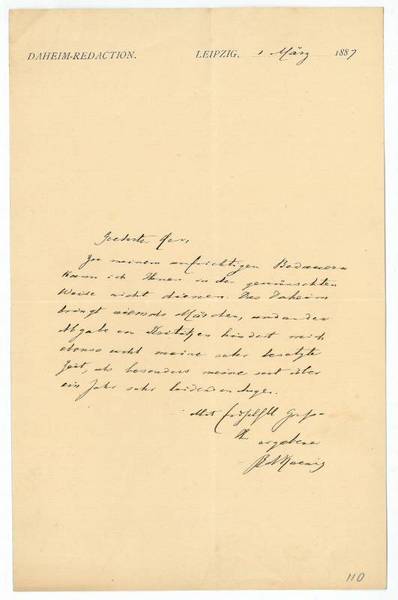 DAHEIM-REDACTION. LEIPZIG. 1 März 1887
Geehrter Herr,
Zu meinem aufrichtigen Bedauern
kann ich Ihnen in der gewünschten
Weise nicht dienen. Das Daheim
bringt niemals Märchen, und an der
Abgabe von Kritiken hindert mich
ebenso wohl meine sehr besetzte
Zeit, als besonders meine seit über
ein Jahr sehr leidenden Augen.
Mit Gruße
Ihr ergebener
Koenig
110